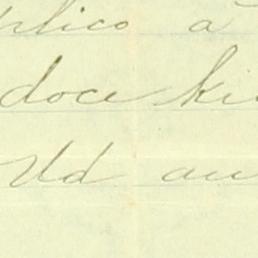 plico a
doce ki
Ud au